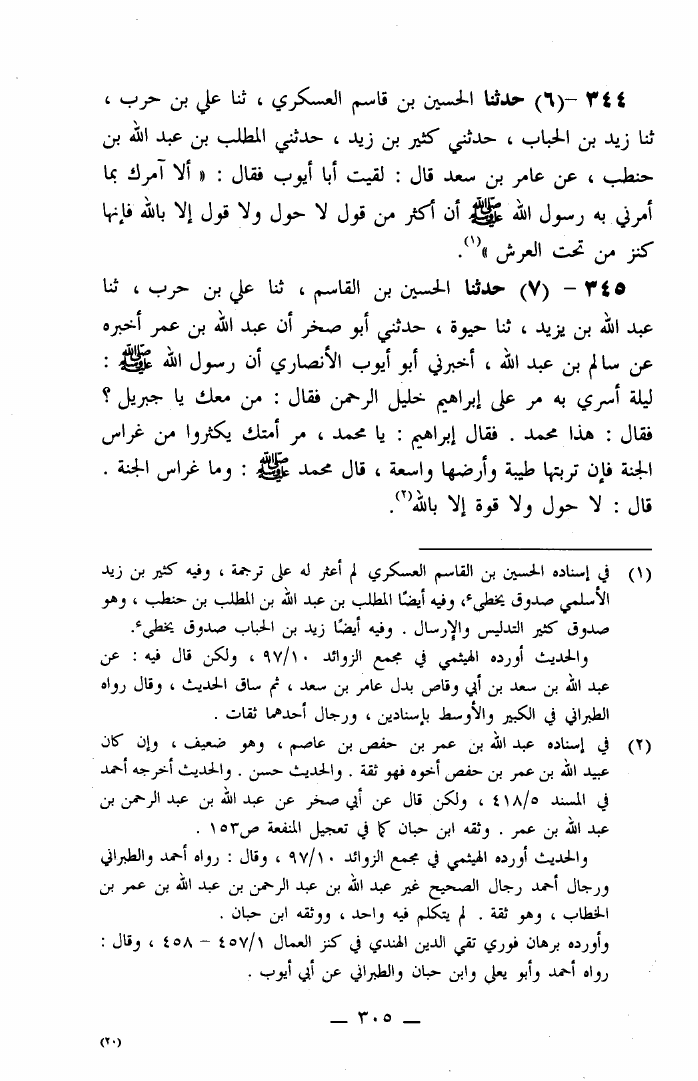 ٣٤٤ -(٦) حدثنا الحسين بن قاسم العسكري ، ثنا علي بن حرب ،
ثنا زيد بن الحباب ، حدثني كثير بن زيد ، حدثني المطلب بن عبد الله بن
حنطب ، عن عامر بن سعد قال : لقيت أبا أيوب فقال : « ألا آمرك بما
أمرني به رسول الله ﷺ أن أكثر من قول لا حول ولا قول إلا بالله فإنها
كنز من تحت العرش »(١).
٣٤٥ - (٧) حدثنا الحسين بن القاسم ، ثنا علي بن حرب ، ثنا
عبد الله بن يزيد ، ثنا حيوة ، حدثني أبو صخر أن عبد الله بن عمر أخبره
عن سالم بن عبد الله ، أخبرني أبو أيوب الأنصاري أن رسول الله ﷺ :
ليلة أسري به مر على إبراهيم خليل الرحمن فقال : من معك يا جبريل ؟
فقال : هذا محمد . فقال إبراهيم : يا محمد ، مر أمتك يكثروا من غراس
الجنة فإن تربتها طيبة وأرضها واسعة ، قال محمد ﷺ : وما غراس الجنة .
قال : لا حول ولا قوة إلا بالله(٢).
(١) في إسناده الحسين بن القاسم العسكري لم أعثر له على ترجمة ، وفيه كثير بن زيد
الأسلمي صدوق يخطىء، وفيه أيضًا المطلب بن عبد الله بن المطلب بن حنطب ، وهو
صدوق كثير التدليس والإرسال . وفيه أيضًا زيد بن الحباب صدوق يخطىء.
والحديث أورده الهيثمي في مجمع الزوائد ٩٧/١٠ ، ولكن قال فيه : عن
عبد الله بن سعد بن أبي وقاص بدل عامر بن سعد ، ثم ساق الحديث ، وقال رواه
الطبراني في الكبير والأوسط بإسنادين ، ورجال أحدهما ثقات .
(٢) في إسناده عبد الله بن عمر بن حفص بن عاصم ، وهو ضعيف ، وإن كان
عبيد الله بن عمر بن حفص أخوه فهو ثقة . والحديث حسن . والحديث أخرجه أحمد
في المسند ٤١٨/٥ ، ولكن قال عن أبي صخر عن عبد الله بن عبد الرحمن بن
عبد الله بن عمر . وثقه ابن حبان كما في تعجيل المنفعة ص١٥٣ .
والحديث أورده الهيثمي في مجمع الزوائد ٩٧/١٠ ، وقال : رواه أحمد والطبراني
ورجال أحمد رجال الصحيح غير عبد الله بن عبد الرحمن بن عبد الله بن عمر بن
الخطاب ، وهو ثقة . لم يتكلم فيه واحد ، ووثقه ابن حبان .
وأورده برهان فوري تقي الدين الهندي في كنز العمال ٤٥٧/١ - ٤٥٨ ، وقال :
رواه أحمد وأبو يعلي وابن حبان والطبراني عن أبي أيوب .
— ٣٠٥ —
(٢٠)